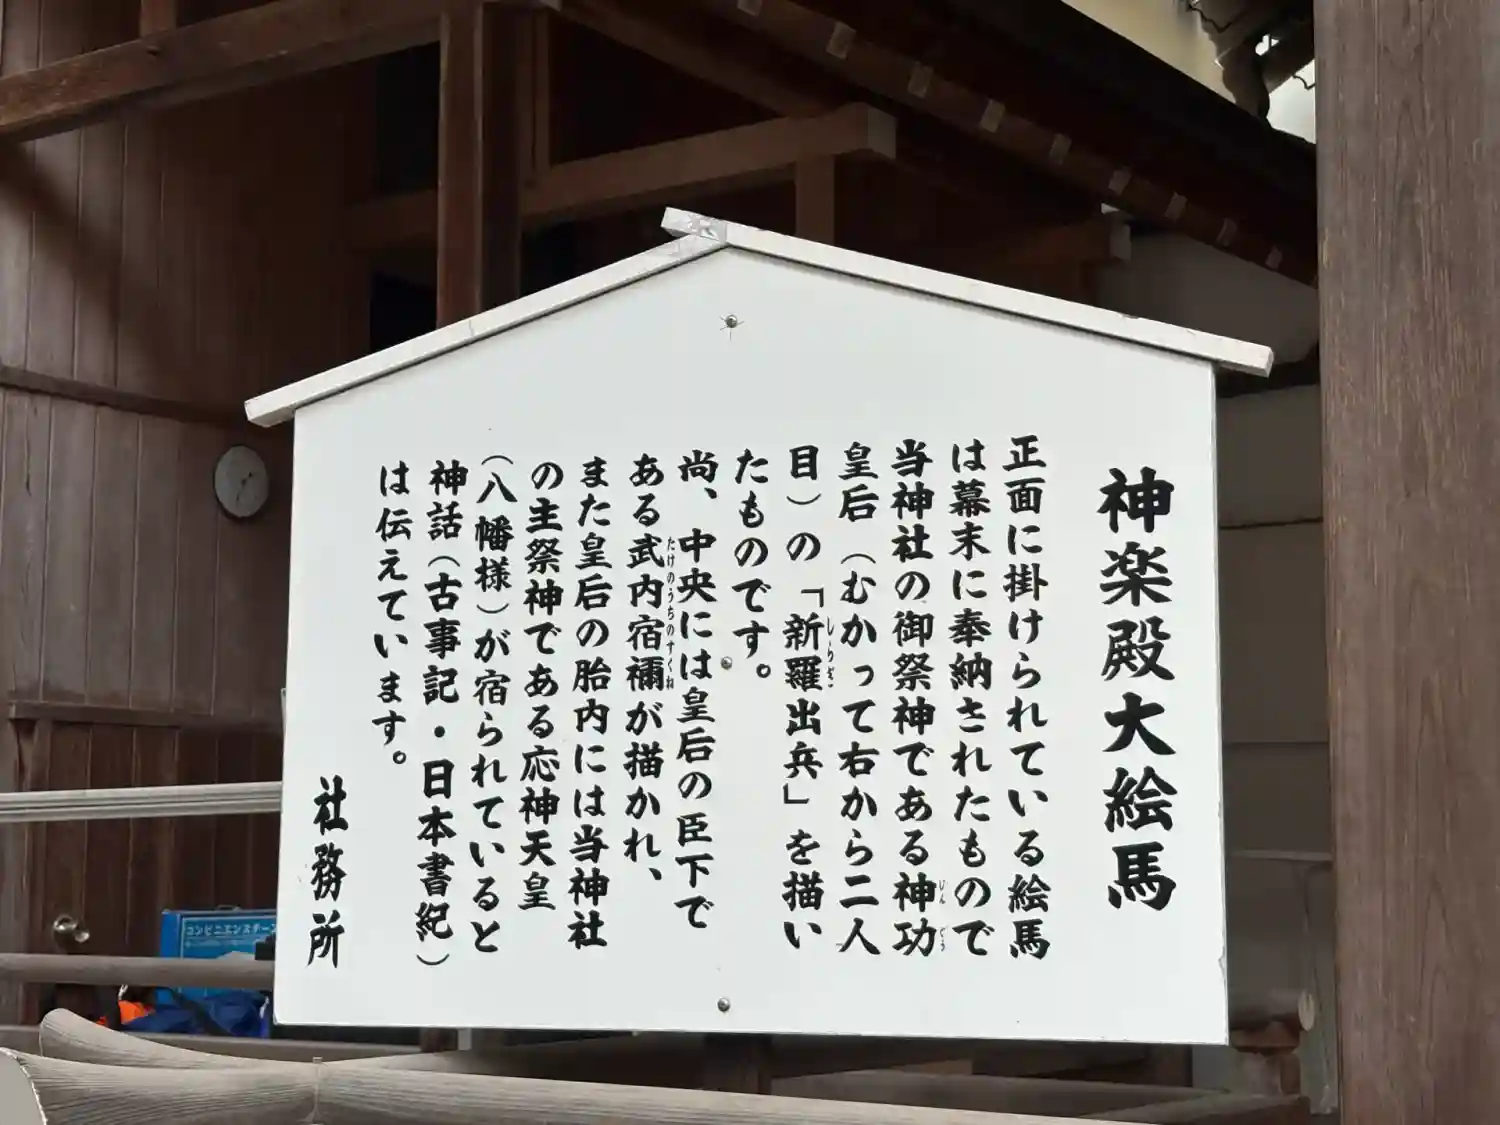 神楽殿大絵馬
正面に掛けられている絵馬
は幕末に奉納されたもので
当神社の御祭神である神功
皇后（むかって右から二人
目）の「新羅出兵」を描い
たものです。
尚、中央には皇后の臣下で
ある武内宿禰が描かれ、
たけのうちのすくね
また皇后の胎内には当神社
の主祭神である応神天皇
（八幡様）が宿られていると
神話（古事記・日本書紀）
は伝えています。
社務所